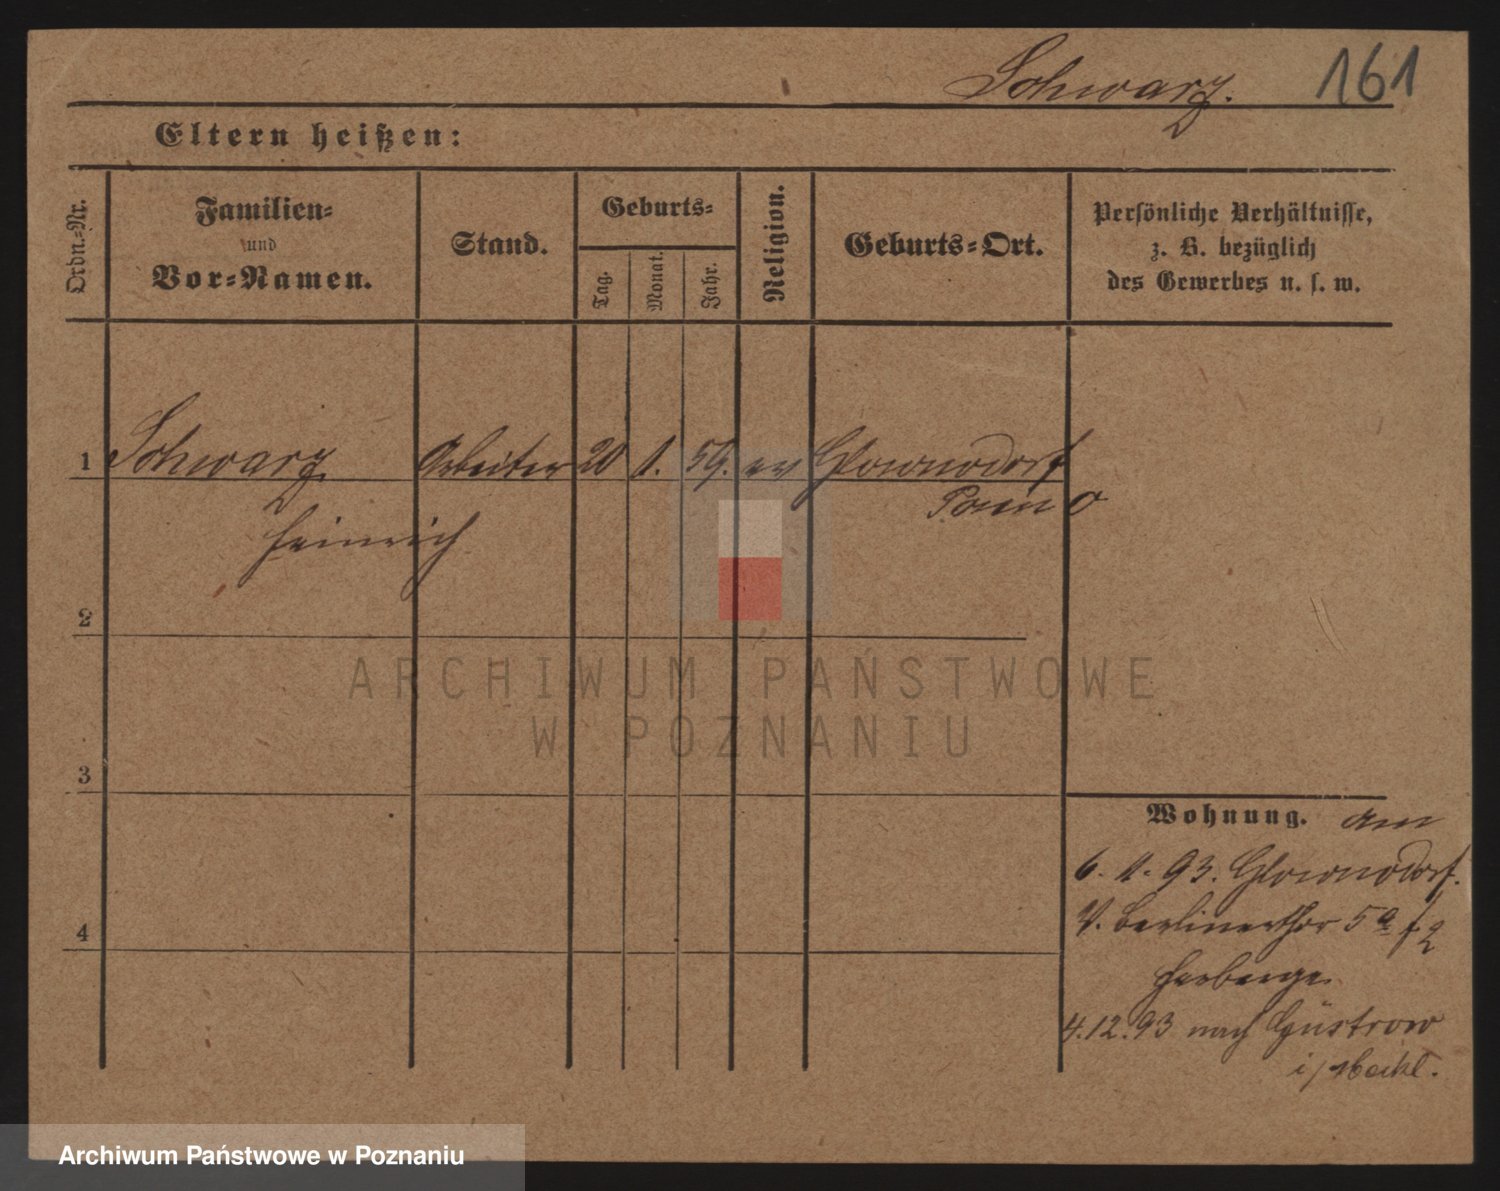 Schwarz. 161
Eltern heißen:
Ordn.-Nr.
Familien-
und
Vor-Namen.
Stand.
Geburts-
Tag.
Monat.
Jahr.
Religion.
Geburts-Ort.
Persönliche Verhältnisse,
z. B. bezüglich
des Gewerbes u. s. w.
1 Schwarz Arbeiter 20 1. 59. ev Glownodorf
Posen O
Heinrich
2
3
4
Wohnung. am
6. 11. 93. Glownodorf.
V. Berlinerthor 5a
Herberge
4.12.93 nach Güstrow
i/Meckl.
ARCHIWUM PAŃSTWOWE
W POZNANIU
Archiwum Państwowe w Poznaniu